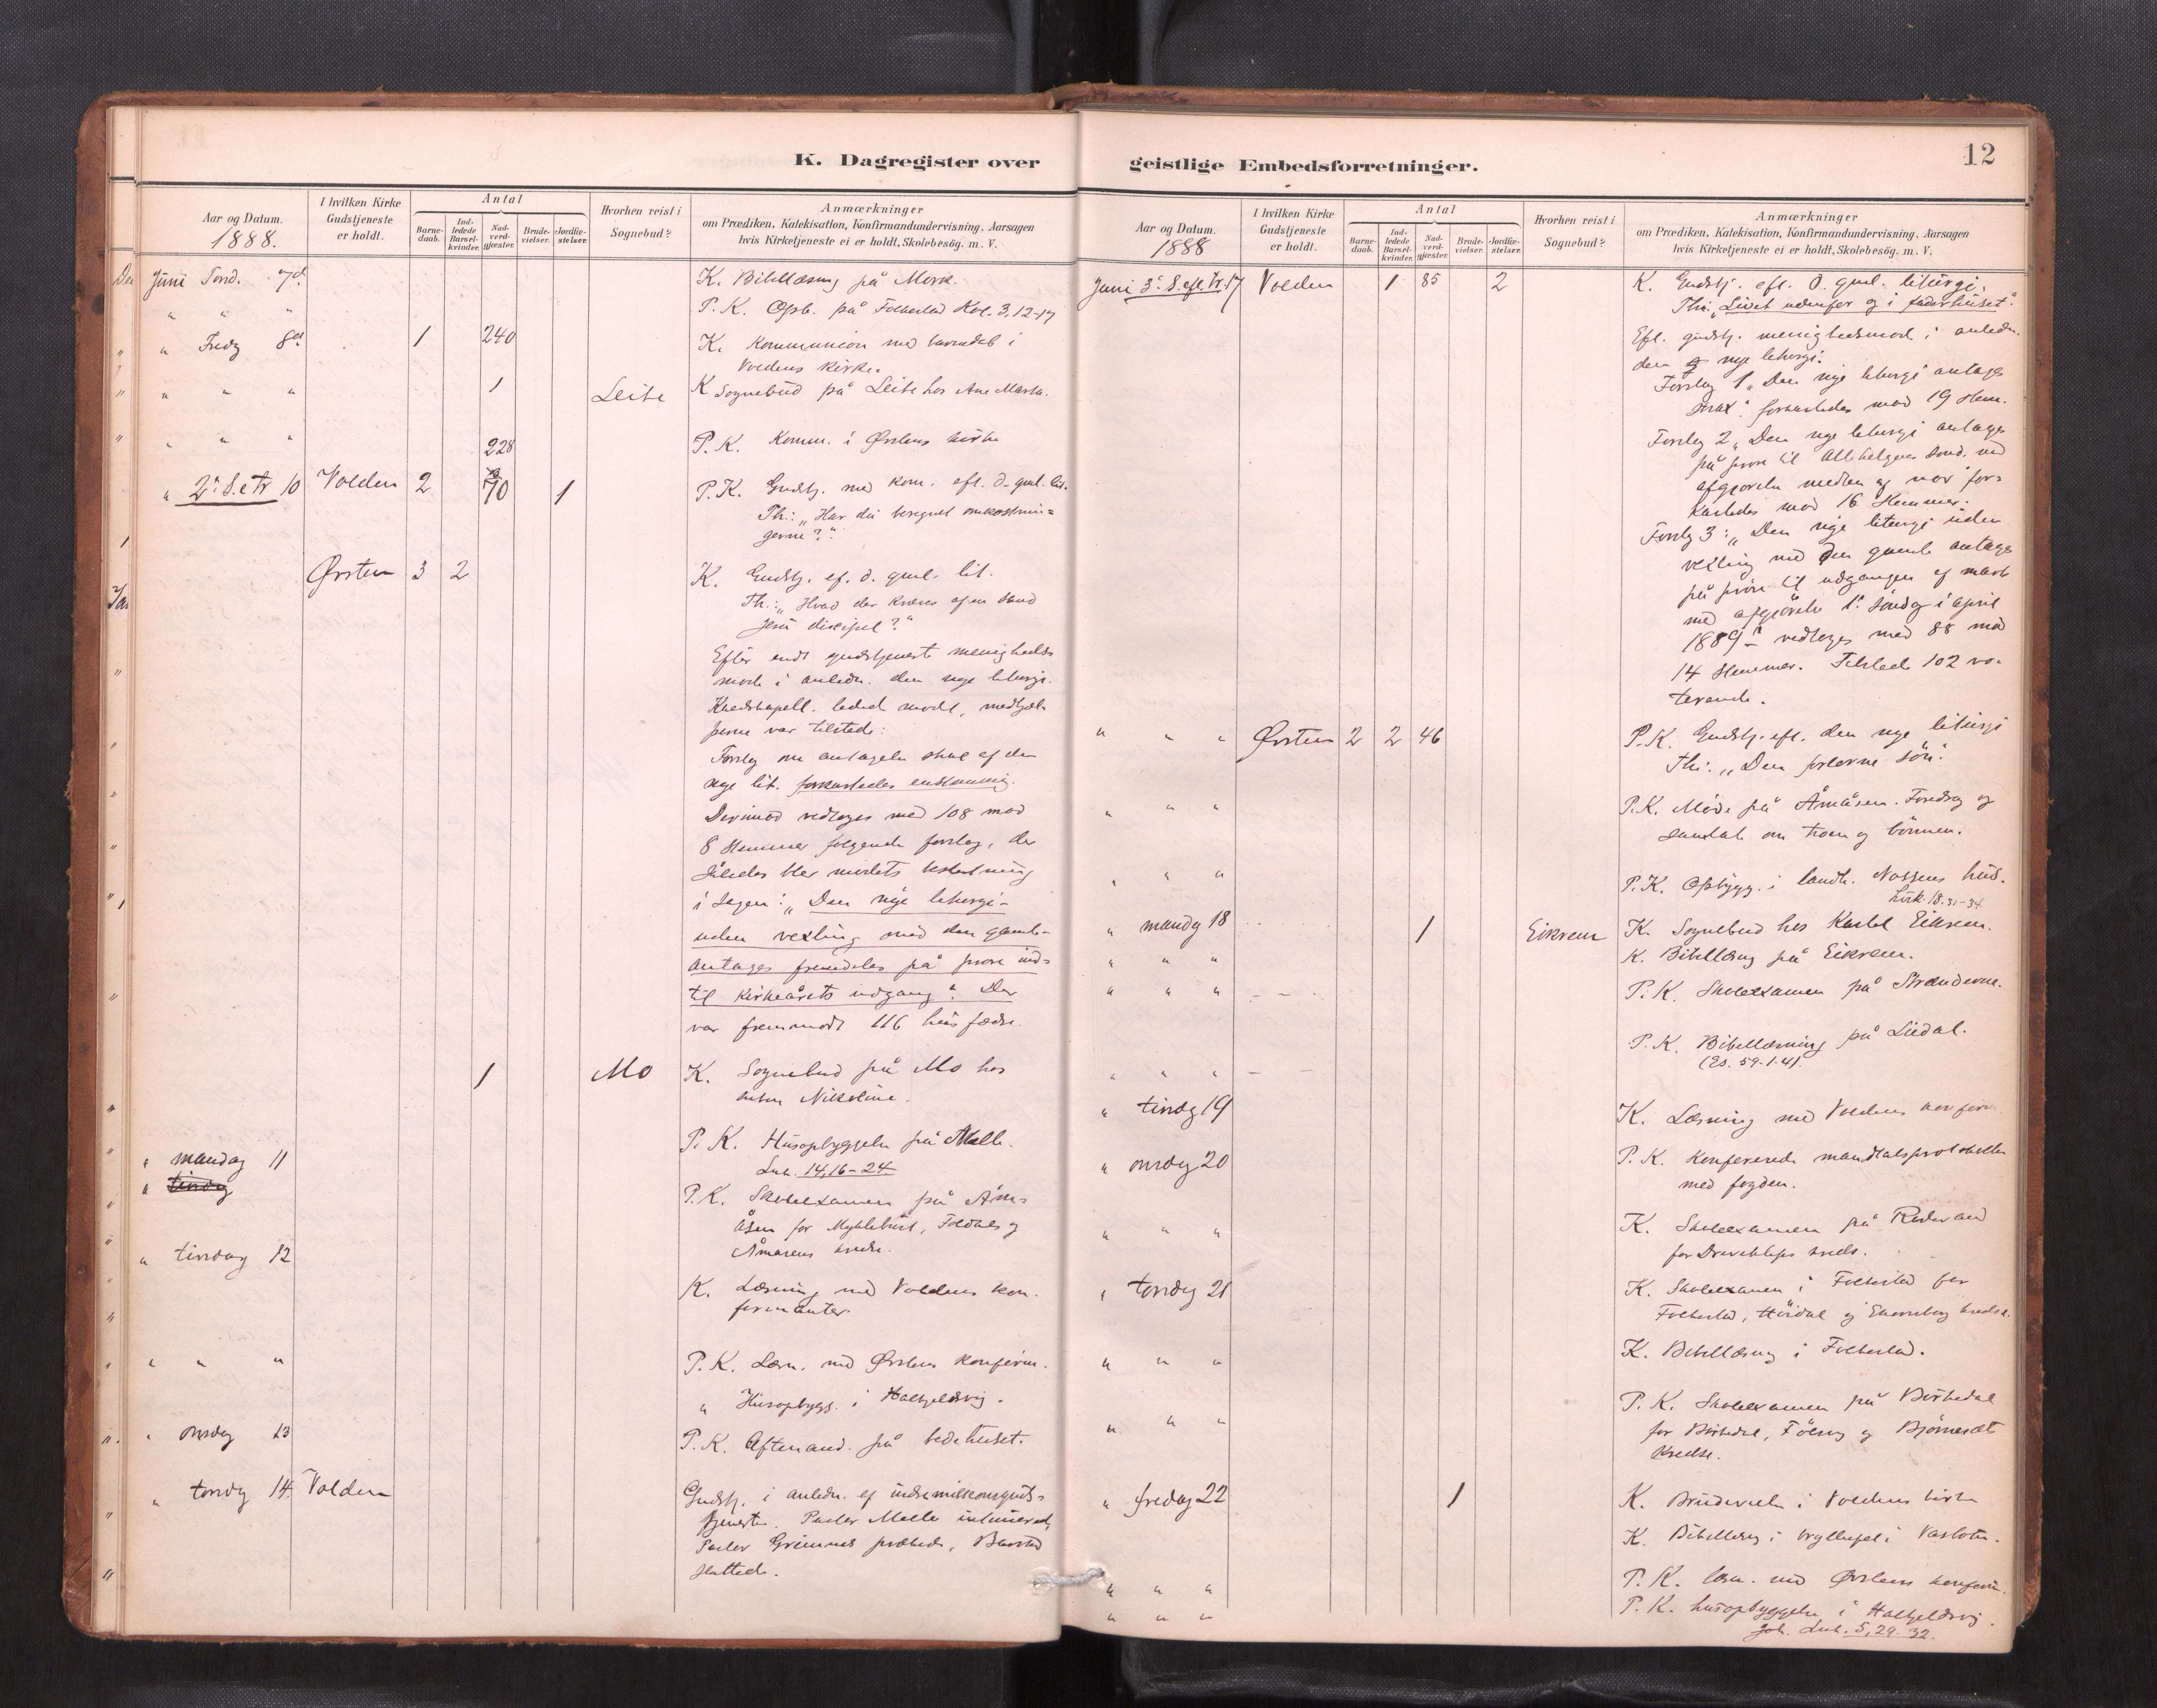 K. Dagregister over
Aar og Datum.
1888.
I hvilken Kirke
Gudstjeneste
er holdt.
Antal
Barne-
daab.
Ind-
ledede
Barsel-
kvinder.
Nad-
verd-
gjæster.
Brude-
vielser.
Jordfæ-
stelser.
Hvorhen reist i
Sognebud?
Anmærkninger
om Prædiken, Katekisation, Konfirmandundervisning, Aarsagen
hvis Kirketjeneste ei er holdt, Skolebesøg. m. V.
Juni Torsd. 7d. K. Bibellæsning på Mork.
" " " P. K. Opb. på Folkestad Kol. 3, 12-17
" Fredg 8de 1 240 K. Kommunion med barnedåb i
Voldens kirke.
" " " 1 Leite K Sognebud på Leite hos Ane Marta.
" " " 228 P. K. Komm. i Ørstens kirke
" 2. S. e Tr 10 Volden 2 70 1 P. K. Gudstj. med kom. eft. d. gml. lit.
Th.: „Har du beregnet omkostnin=
gerne?“
Ørsten 3 2 K. Gudstj. ef. d. gml. lit.
Th.: „Hvad der kræves af en sand
Jesu discipel?“
Efter endt gudstjeneste menigheds
møde i anledn. den nye liturgi.
ledede mødet, medhjæl-
perne var tilstede:
Forslag om antagelse strax af den
nye lit. forkastedes enstemmig.
Derimod vedtoges med 108 mod
8 stemmer følgende forslag, der
således blev mødets beslutning
i sagen: „Den nye liturgi
uden vexling med den gamle
antages fremdeles på prøve ind=
til kirkeårets udgang“. Der
var fremmødt 116 husfædre.
1 Mo K. Sognebud på Mo hos
enken Nikoline.
P. K. Husopbyggelse på Melle.
Luk. 14,16-24
" mandag 11 P. K. Skoleexamen på Åm=
åsen for Myklebust, Foldals og
Åmåsens kreds.
" tirsdag 12 K. Læsning med Voldens kon-
firmanter.
" " " P. K. Læsn. med Ørstens konfirm.
" Husopbygg. i Halkjelsvig.
" onsdg 13 P. K. Aftenand. på bedehuset.
" torsdg 14. Volden Gudstj. i anledn. af indremissionsguds-
tjeneste. Pastor Melle intimerede,
Pastor Grimnes prækede, Barstad
sluttede.
geistlige Embedsforretninger.
12
Aar og Datum.
1888
I hvilken Kirke
Gudstjeneste
er holdt.
Antal
Barne-
daab.
Ind-
ledede
Barsel-
kvinder.
Nad-
verd-
gjæster.
Brude-
vielser.
Jordfæ-
stelser.
Hvorhen reist i
Sognebud?
Anmærkninger
om Prædiken, Katekisation, Konfirmandundervisning, Aarsagen
hvis Kirketjeneste ei er holdt, Skolebesøg. m. V.
Juni 3. S. eft. Tr. 17 Volden 1 85 2 K. Gudstj. eft. d. gml. liturgi.
Th: „Livet udenfor og i faderhuset“.
Eft. gudstj. menighedsmøde i anledn.
den nye liturgi.
Forslag 1 „Den nye liturgi antages
strax“. forkastedes mod 19 stem.
Forslag 2 „Den nye liturgi antages
på prøve til Allehelgens sønd. med
afgjørelse mellem og for-
kastedes mod 16 stemmer.
Forslg 3: „Den nye liturgi uden
vexling med den gamle antages
på prøve til udgangen af marts
med afgjørelse 1. søndag i april
1889“ vedtoges med 88 mod
14 stemmer. Tilstede 102 vo-
terende.
" " " Ørsten 2 2 46 P. K. Gudstj. eft. den nye liturgi
Th: „Den fortabte søn“.
" " " P. K. Møde på Åmåsen. Foredrag og
samtale om troen og bønnen.
" " " P. K. Opbygg. i landh. Nossens hus.
Luk. 18.31-34
" mandg 18 1 Eikrem K. Sognebud hos Eikrem.
" " " K. Bibellæsng på Eikrem.
" " " P. K. Skoleexamen på Strandene.
" " " P. K. Bibellæsning på Liedal.
(Es. 59. 1-4).
" tirsdg 19 K. Læsning med Voldens konfirm.
" onsdg 20 P. K. Konfererede mandtalsprotokollen
med fogden.
" " " K. Skoleexamen på Rødvand
for kreds.
" torsdg 21 K. Skoleexamen i Folkestad for
Folkestad, Høidal og Ekornberg kredse.
" " " K. Bibellæsng i Folkestad.
" " " P. K. Skoleexamen på Birkedal
for Birkedal, og Bjørnesæt
kredse.
" fredag 22 1 K. Brudeviels. i Voldens kirke
K. Bibellæsg i bryllupet i
" " " P. K. læsn. med Ørstens konfirm.
" " " P. K. husopbyggelse i Halkjelsvig.
Luk. 5, 29-32.